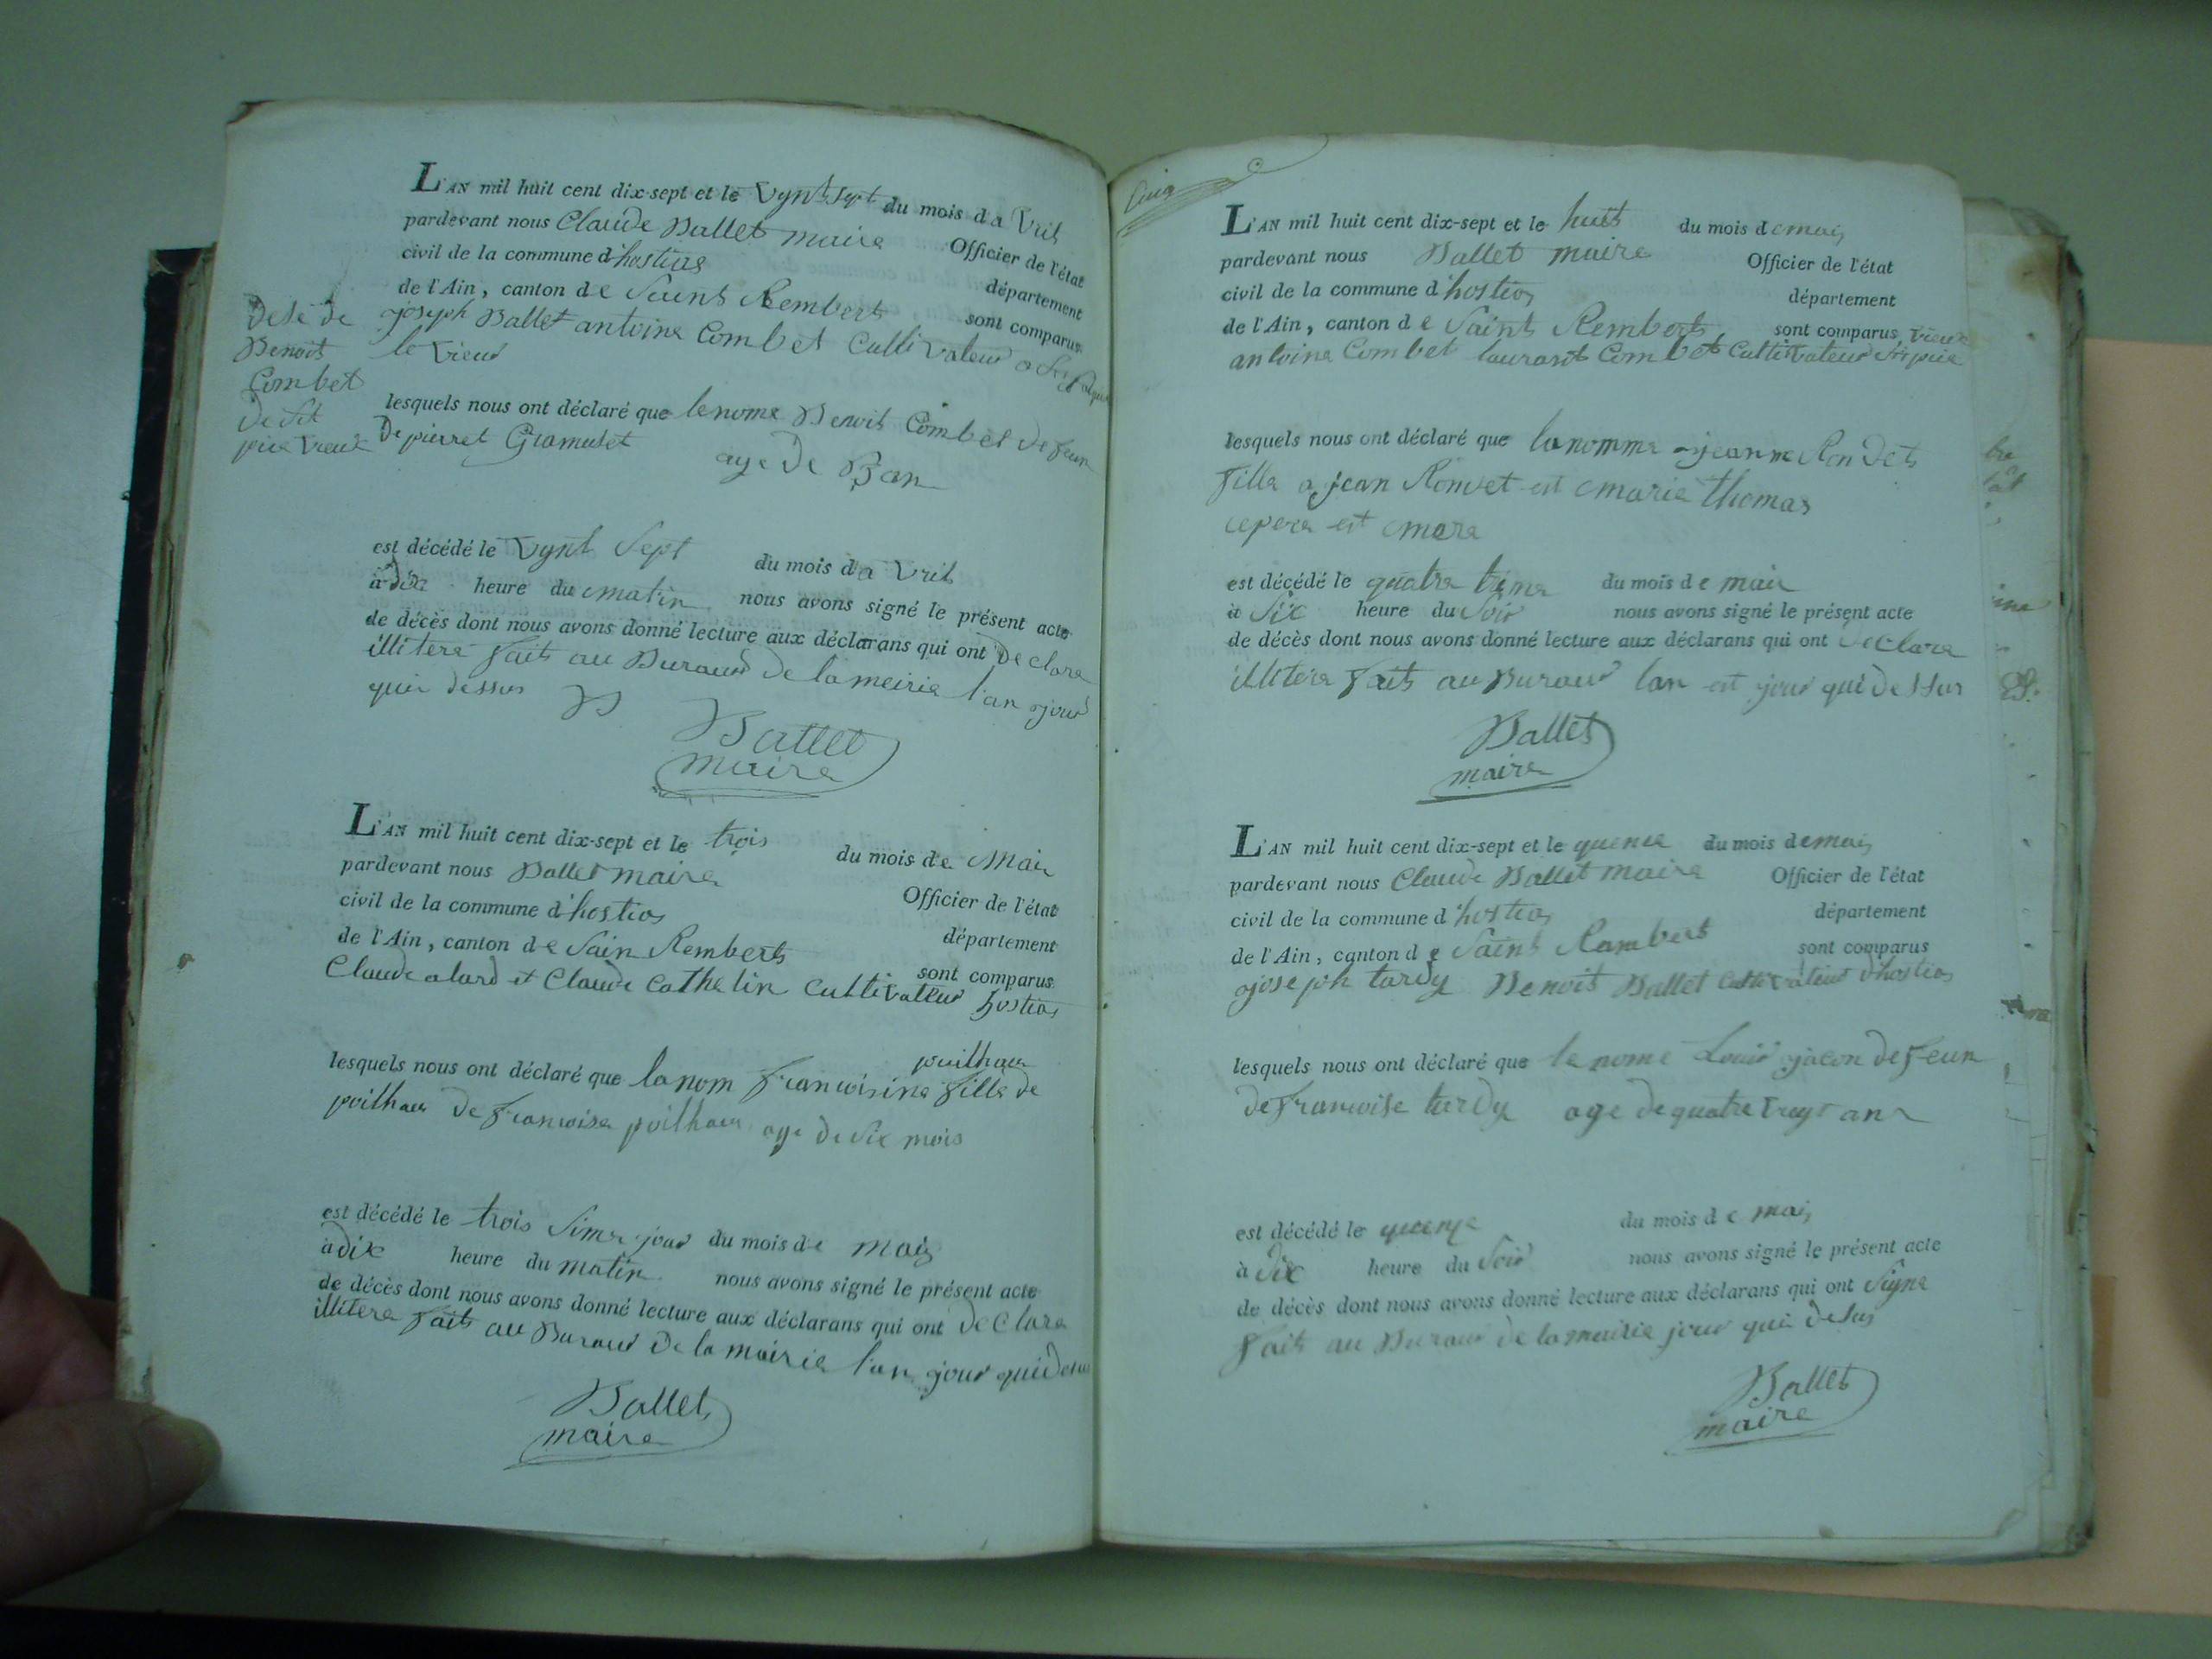 L'AN mil huit cent dix-sept et le vynt sept du mois d a vril
pardevant nous Claude Ballet maire Officier de l'état
civil de la commune d'hostias département
de l'Ain, canton de Saint Rembert sont comparus
joseph Ballet antoine Combet Cultivateur a
le vieux
Desé de
Benoit
Combet
de
pie vieux
lesquels nous ont déclaré que le nome Benoit Combet defeun
De pierret Gramuset
age de an
est décédé le vynt Sept du mois d'a vril
à dix heure du matin nous avons signé le présent acte
de décès dont nous avons donné lecture aux déclarans qui ont De clare
illitere fait au Buraud de la meirie l'an jour
qui dessus
Ballet
maire
L'AN mil huit cent dix-sept et le trois du mois de mai
pardevant nous Ballet maire Officier de l'état
civil de la commune d'hostias département
de l'Ain, canton de Sain Rembert sont comparus
Claude alard et Claude Cathelin Cultivateur hostias
lesquels nous ont déclaré que la nom francoisine fille de
de francoise age de six mois
est décédé le trois sime jour du mois de mai
à dix heure du matin nous avons signé le présent acte
de décès dont nous avons donné lecture aux déclarans qui ont declare
illitere fait au Buraud De la mairie l'an jour qui desus
Ballet
maire
Cinq
L'AN mil huit cent dix-sept et le huit du mois de mai
pardevant nous Ballet maire Officier de l'état
civil de la commune d'hostias département
de l'Ain, canton de Saint Rembert sont comparus vieux
antoine Combet laurant Combet Cultivateur pie
lesquels nous ont déclaré que la nomme jeanne Rondet
fille a jean Ronset est marie thomas
cepere est mere
est décédé le quatre trime du mois de mai
à Six heure du Soir nous avons signé le présent acte
de décès dont nous avons donné lecture aux déclarans qui ont declare
illitere fait au Buraud lan est jour qui dessus
Ballet
maire
L'AN mil huit cent dix-sept et le quense du mois de mai
pardevant nous Claude Ballet maire Officier de l'état
civil de la commune d'hostias département
de l'Ain, canton de Saint Rambert sont comparus
joseph tardy Benoit Ballet Cultivateur d'hostias
lesquels nous ont déclaré que le nome Louis jacon defeun
de francoise turdy age de quatre vingt an
est décédé le quense du mois de mai
à Six heure du Soir nous avons signé le présent acte
de décès dont nous avons donné lecture aux déclarans qui ont Signe
fait au Buraud de la mairie jour qui desus
Ballet
maire